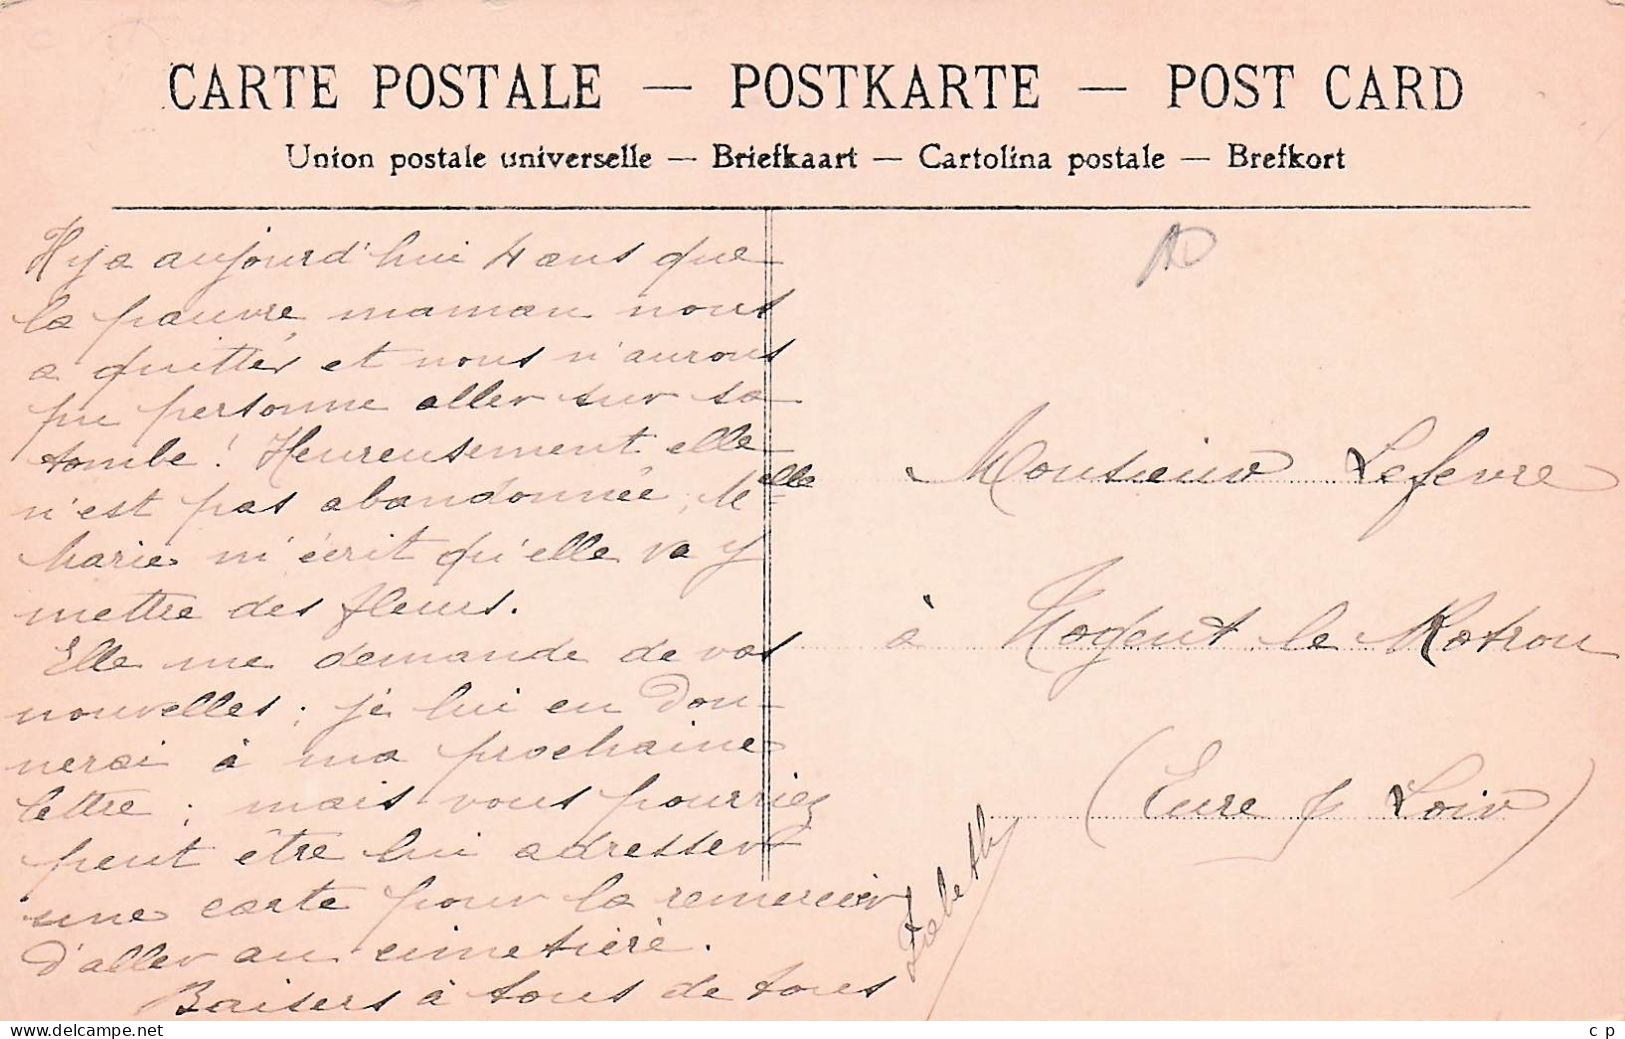 CARTE POSTALE — POSTKARTE — POST CARD
Union postale universelle — Briefkaart — Cartolina postale — Brefkort
Il y a aujourd'hui 4 ans que
la pauvre maman nous
a quittés et nous n'aurons
pu personne aller sur sa
tombe ! Heureusement elle
n'est pas abandonnée, Melle
Marie m'écrit qu'elle va y
mettre des fleurs.
Elle me demande de vos
nouvelles ; je lui en don-
nerai à ma prochaine
lettre ; mais vous pourriez
peut être lui adresser
une carte pour la remercier
d'aller au cimetière.
Baisers à tous de tous
Monsieur Lefevre
à Nogent le Rotrou
(Eure & Loir)
www.delcampe.net
c p